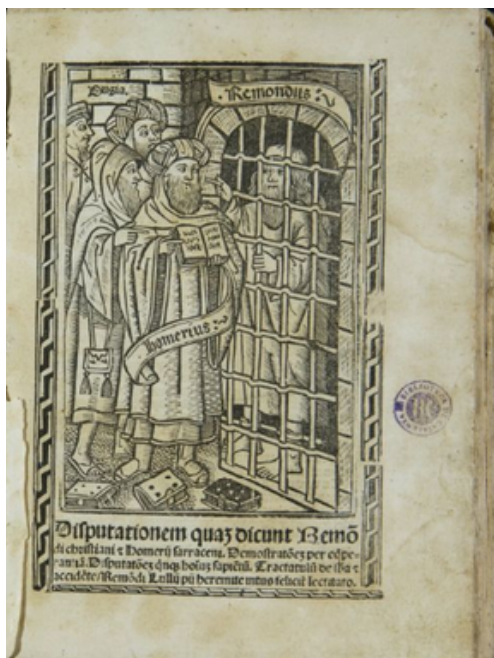 Bugia.
Remondus:
homerius:
Disputationem quaʒ dicunt Remō
di christiani ⁊ Homerij sarraceni. Demostratōes per eq̄pe-
rantiā. Disputatōes qnqʒ hoīuʒ sapiētū. Tractatulū de sba ⁊
accidēte/Remōdi Lullij pij heremite intus felicit̄ lectitato.